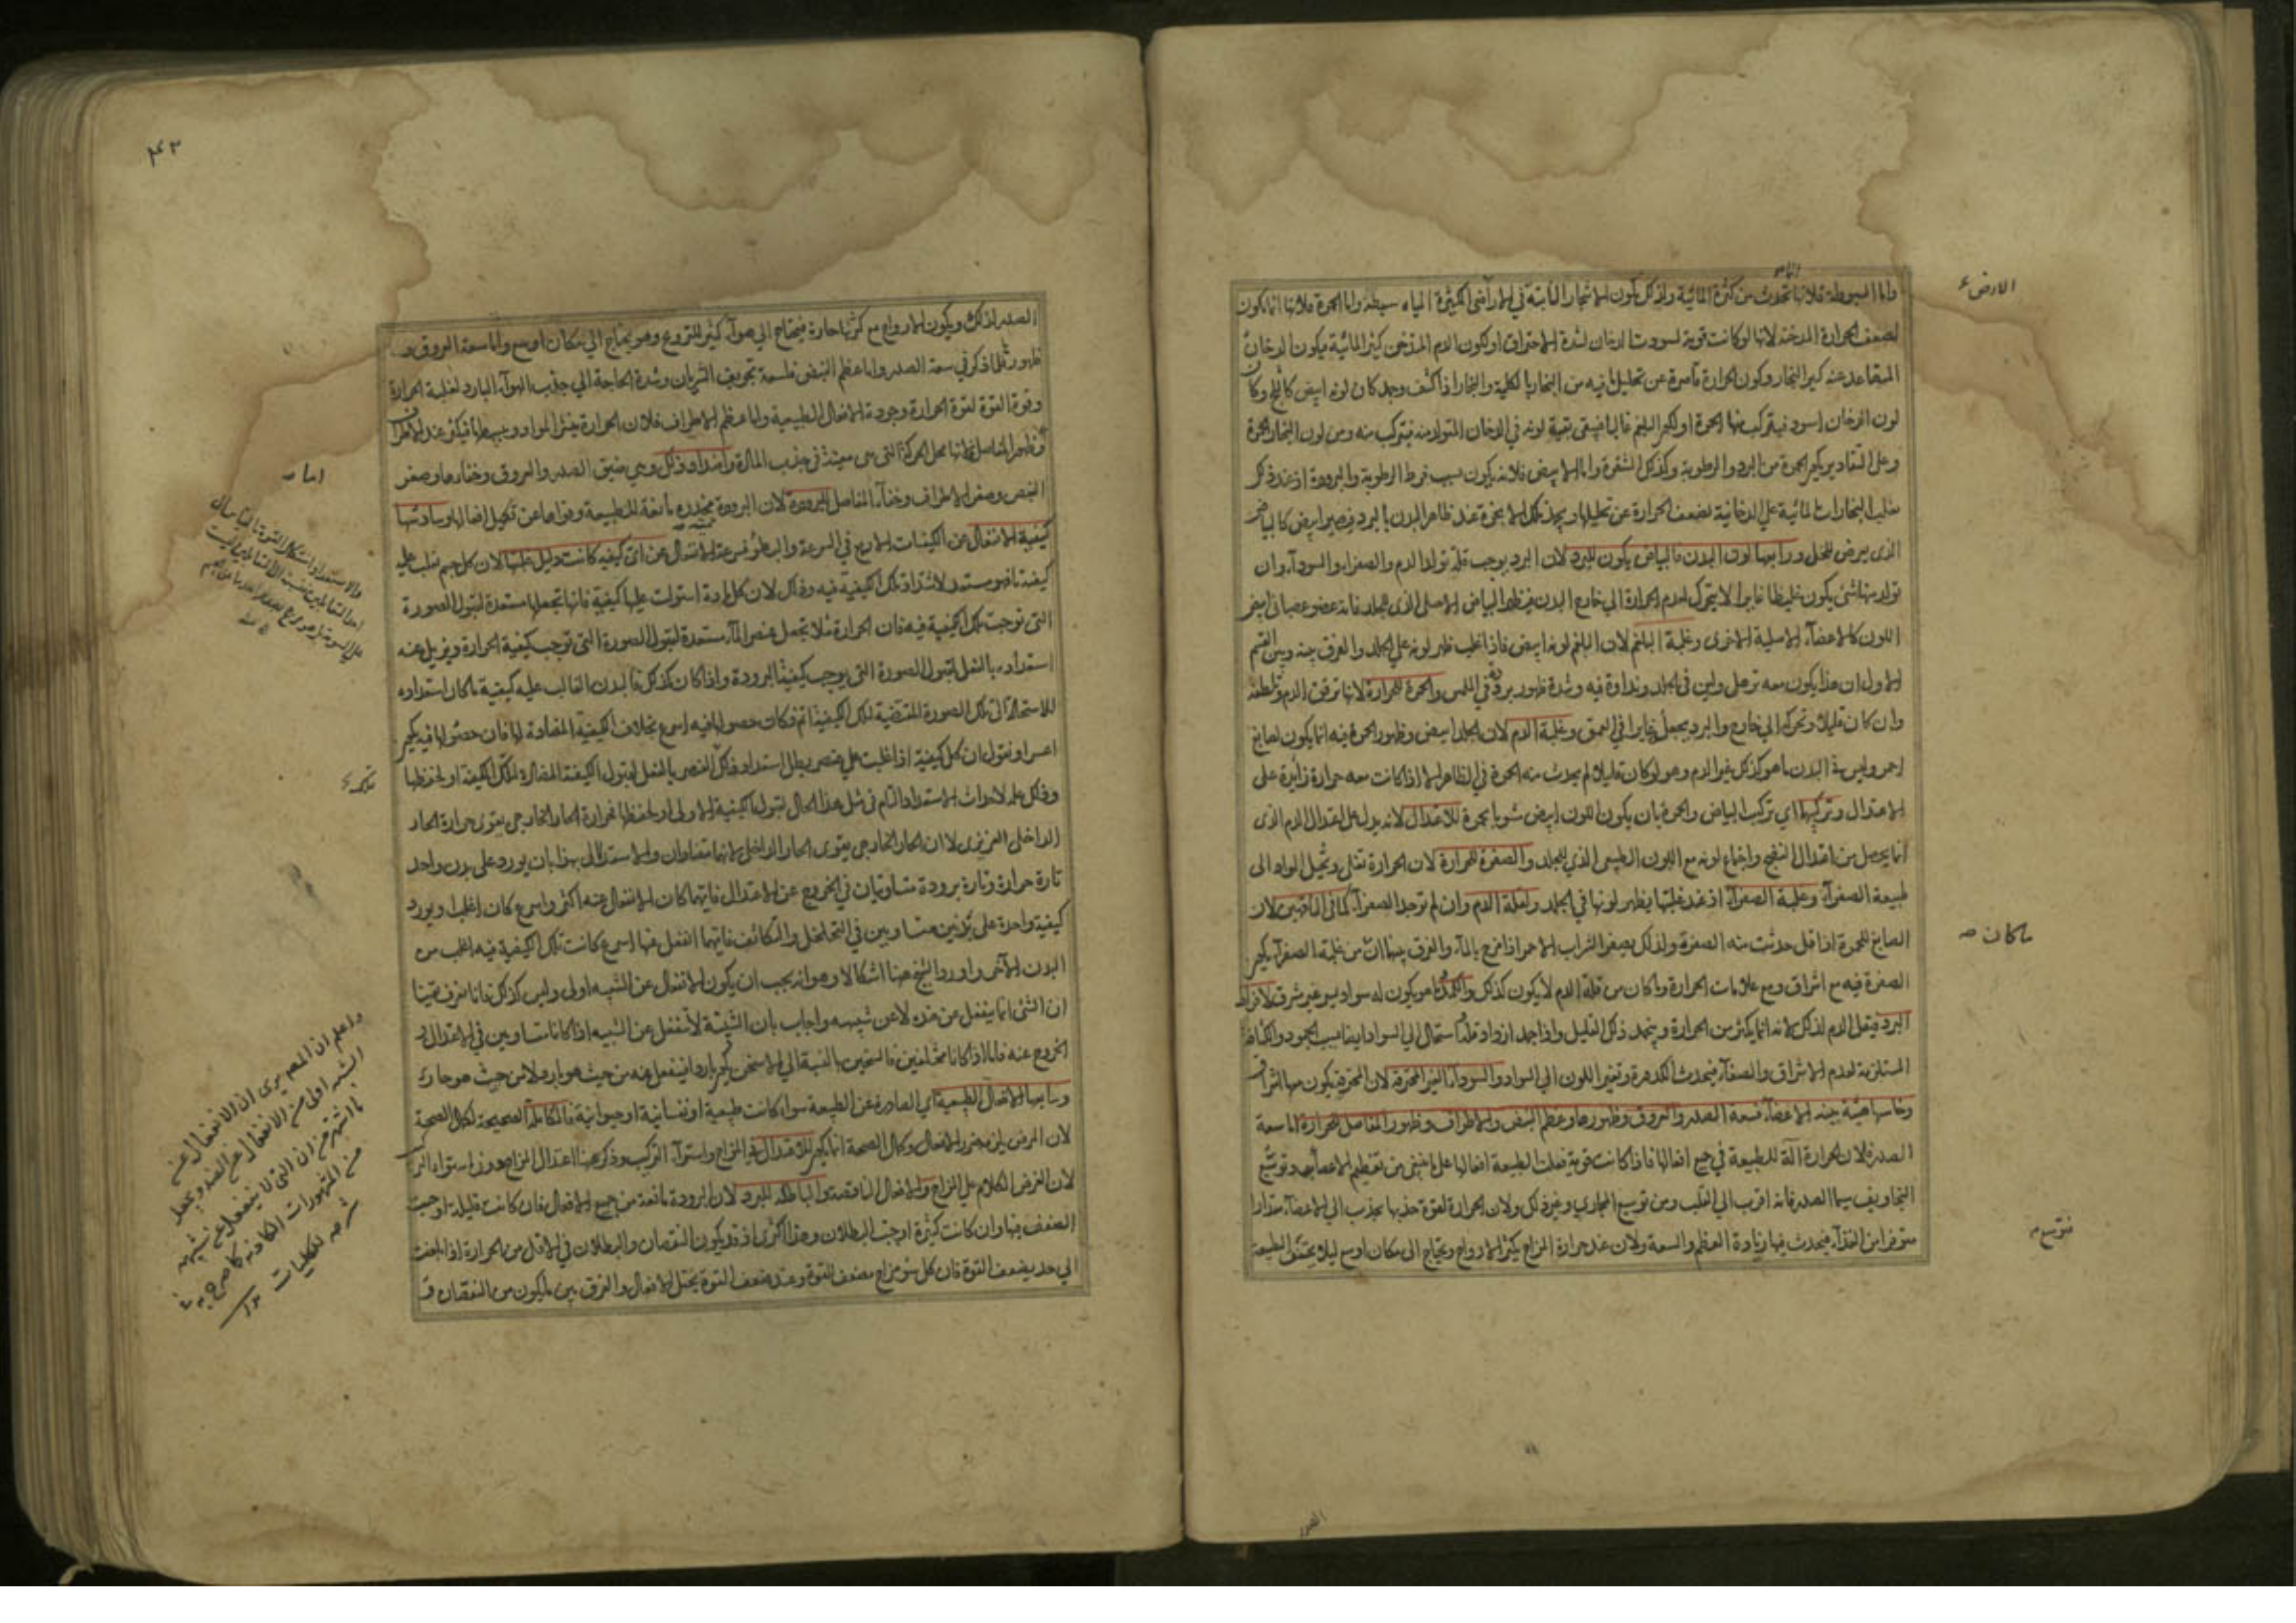 واما السبوطة فلانها تحدث من كثرة المائية ولذلك يكون الاشجار النابتة في الاراضى الكثيرة المياه سبطة واما الحمرة فلانها انما يكون
لضعف الحرارة المدخنة لانها لو كانت قوية لسودت الدخان لشدة الاحتراق او لكون الدم المتدخن كثير المائية فيكون الدخان
المتصاعد عنه كثير البخار وكون الحرارة قاصرة عن تحليل ما فيه من البخار بالكلية والبخار اذا كثف وجمد كان لونه ابيض كالثلج وكان
لون الدخان اسود فيتركب منها الحمرة او لكثير البلغم غالبا فيبقى بقية لونه في الدخان المتولد منه فيتركب منه ومن لون البخار الحمرة
وعلى التقادير يكون الحمرة من البرد والرطوبة وكذلك الشقرة واما الابيض فلانه يكون بسبب فرط الرطوبة والبرودة اذ عند ذلك
يغلب البخارات المائية على الدخانية لضعف الحرارة عن تحليلها ويجمد تلك الابخرة عند ظاهر البدن بالبرد فيصير ابيض كالبياض
الذى يعرض للخل ورابعها لون البدن فالبياض يكون للبرد لان البرد يوجب قلة تولد الدم والصفراء والسوداء وان
تولد منها شئ يكون غليظا غايرا لا يتحرك لعدم الحرارة الى خارج البدن فيظهر البياض الاصلى الذى للجلد فانه عضو عصبانى ابيض
اللون كالاعضاء الاصلية الاخرى وغلبة البلغم لان البلغم لونه ابيض فاذا غلب ظهر لونه على الجلد والفرق بينه وبين القسم
الاول ان هذا يكون معه ترهل ولين فى الجلد ونداوة فيه وشدة ظهور برودة في اللمس والحمرة للحرارة لانها ترقق الدم وتلطفه
وان كان قليلا وتحركه الى خارج والبرد يجعله غايرا في العمق وغلبة الدم لان الجلد ابيض وظهور الحمرة فيه انما يكون لصابغ
احمر وليس في البدن ما هو كذلك غير الدم وهو لو كان قليلا لم يحدث منه الحمرة في الظاهر الا اذا كانت معه حرارة زايدة على
الاعتدال وتركبهما اى تركب البياض والحمرة بان يكون اللون ابيض مشوبا بحمرة للاعتدال لانه يدل على اعتدال الدم الذى
انما يحصل من اعتدال النضج واجتماع لونه مع اللون الطبيعى الذى للجلد والصفرة للحرارة لان الحرارة تغلى وتحيل المواد الى
طبيعة الصفراء وغلبة الصفراء اذ عند غلبتها يظهر لونها في الجلد ولقلة الدم وان لم توجد الصفراء كما في الناقهين لان
الصابغ للحمرة اذا قل حدثت منه الصفرة ولذلك يصفر الشراب الاحمر اذا مزج بالماء والفرق بينهما ان من غلبة الصفراء يكون
الصفرة فيه مع اشراق ومع علامات الحرارة وما كان من قلة الدم لا يكون كذلك والكمدة هو يكون له سواد يسير غير مشرق لافراط
البرد فيقل الدم لذلك لانه انما يكثر من الحرارة ويجمد ذلك القليل واذا جمد ازداد قلة واستحال الى السواد ايضا بسبب الجمود والكثافة
المستلزمة لعدم الاشراق والصفاء فيحدث الكمدة وتغير اللون الى السواد والسوداء الغير المحترقة لان المحترقة يكون معها اشراق
وخامسها هيئة بنية الاعضاء فسعة الصدر والعروق وظهورها وعظم النبض والاطراف وظهور المفاصل للحرارة اما سعة
الصدر فلان الحرارة آلة للطبيعة في جميع افعالها فاذا كانت قوية فعلت الطبيعة افعالها على ما ينبغى من تعظيم الاعضاء وتوسيع
التجاويف سيما الصدر فانه اقرب الى القلب ومن توسيع المجارى وغير ذلك ولان الحرارة لقوة جذبها يجذب الى الاعضاء مقدارا
متوفرا من الغذاء فيحدث فيها زيادة العظم والسعة ولان عند حرارة المزاج يكثر الارواح ويحتاج الى مكان اوسع ليلا يختنق الطبيعة
الارض
ما كان ص
الصدر
الصدر لذلك ويكون الارواح مع كثرتها حارة فيحتاج الى هواء كثير للتروح وهو يحتاج الى مكان اوسع واما سعة العروق و
ظهورها فلما ذكر في سعة الصدر واما عظم النبض فلسعة تجويف الشريان وشدة الحاجة الى جذب الهواء البارد لغلبة الحرارة
وقوة القوة لقوة الحرارة وجودة الافعال الطبيعية واما عظم الاطراف فلان الحرارة ينشر المواد ويبسطها فيكثر عند الاطراف
وظهور المفاصل لانها محل الحركة التى هى معينة فى جذب المادة واضداد ذلك وهى ضيق الصدر والعروق وخفاءها وصغر
النبض وصغر الاطراف وخفاء المفاصل للبرودة لان البرودة مخدرة مانعة للطبيعة وقواها عن تكميل افعالها وسادسها
كيفية الانفعال عن الكيفيات الاربع في السرعة والبطؤ فسرعة الانفعال عن اى كيفية كانت دليل غلبتها لان كل جسم تغلب عليه
كيفية ما فهو مستعد لاشتداد تلك الكيفية فيه وذلك لان كل مادة استولت عليها كيفية فانها تجعلها مستعدة لقبول الصورة
التى توجب تلك الكيفية فيه فان الحرارة مثلا تجعل عنصر الماء مستعدة لقبول الصورة التى توجب كيفية الحرارة ويزيل عنه
استعداده بالفعل لقبول الصورة التى يوجب كيفية البرودة واذا كان كذلك فالبدن الغالب عليه كيفية ما كان استعداده
للاستحالة الى تلك الصورة المقتضية لتلك الكيفية اتم فكان حصولها فيه اسرع بخلاف الكيفية المضادة لها فان حصولها فيه يكون
اعسر او نقول ان كل كيفية اذا غلبت على عنصر يبطل استعداد ذلك العنصر بالفعل لقبول الكيفية المضادة لتلك الكيفية او لحفظها
وذلك علة لاحداث الاستعداد التام فى مثل هذا الحال لقبول الكيفية الاولى او لحفظها فحرارة الحار الخارجى يقوى حرارة الحار
الداخلى الغريزى لا ان الحار الخارجى يقوى الحار الداخل لانهما متضادان والاستدلال بهذا بان يورد على بدن واحد
تارة حرارة وتارة برودة متساويتان في الخروج عن الاعتدال فايتهما كان الانفعال عنه اكثر واسرع كان اغلب او يورد
كيفية واحدة على بدنين متساويين في التخلخل والتكاثف فايهما انفعل عنها اسرع كانت تلك الكيفية فيه اغلب من
البدن الآخر واورد الشيخ هنا اشكالا وهو انه يجب ان يكون الانفعال عن الشبيه اولى وليس كذلك فانا نعرف يقينا
ان الشئ انما ينفعل عن ضده لا عن شبيهه واجاب بان الشبيه لا ينفعل عن الشبيه اذا كانا متساويين في الاعتدال او
الخروج عنه فاما اذا كانا مختلفين فالسخين بالنسبة الى الاسخن يكون باردا فينفعل عنه من حيث هو بارد لا من حيث هو حار
وسابعها الافعال الطبيعية اى الصادرة عن الطبيعة سواء كانت طبيعية او نفسانية او حيوانية فالكاملة الصحيحة لكمال الصحة
لان المرض يلزمه ضرر الافعال وكمال الصحة انما يكون للاعتدال في المزاج واستواء التركيب وذكر هنا اعتدال المزاج دون استواء التركيب
لان الغرض الكلام على المزاج والافعال الناقصة والباطلة للبرد لان البرودة مانعة من جميع الافعال فان كانت قليلة اوجبت
الضعف فيها وان كانت كثيرة اوجبت البطلان وهذا اكثرى اذ قد يكون النقصان والبطلان في الاقل من الحرارة اذا بلغت
الى حد يضعف القوة فان كل سوء مزاج مضعف للقوة وعند ضعف القوة يختل الافعال والفرق بين ما يكون من النقصان و
۴۲
واعلم ان المص يرى ان الانفعال عن
الشبه اولى من الانفعال عن الضد ويجعل
ما اشتهر من ان الشئ لا ينفعل عن شبيهه
من المشهورات الكاذبة كما صرح به في
شرحه للكليات